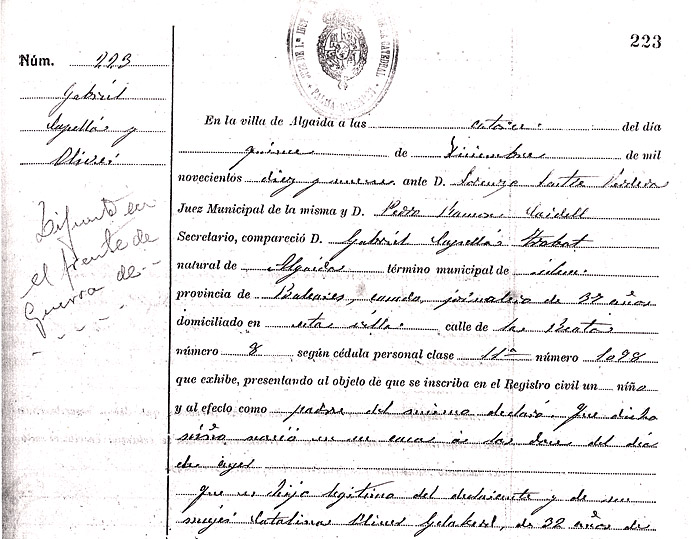 223
Núm. 223
Gabriel
Capellás y
Oliver
Difunto en
el frente de
guerra de
En la villa de Algaida a las catorce del día
quince de Diciembre de mil
novecientos diez y nueve ante D. Lorenzo
Juez Municipal de la misma y D. Pedro Ramon
Secretario, compareció D. Gabriel Capellás Trobat
natural de Algaida término municipal de idem
provincia de Baleares, casado, jornalero de 37 años
domiciliado en esta villa calle de la Beata
número 8 según cédula personal clase 11ª número 1098
que exhibe, presentando al objeto de que se inscriba en el Registro civil un niño
y al efecto como padre del mismo declaró: Que dicho
niño nació en su casa a las doce del dia
de ayer
Que es hijo legitimo del declarante y de su
mujer Catalina Oliver, de 32 años de